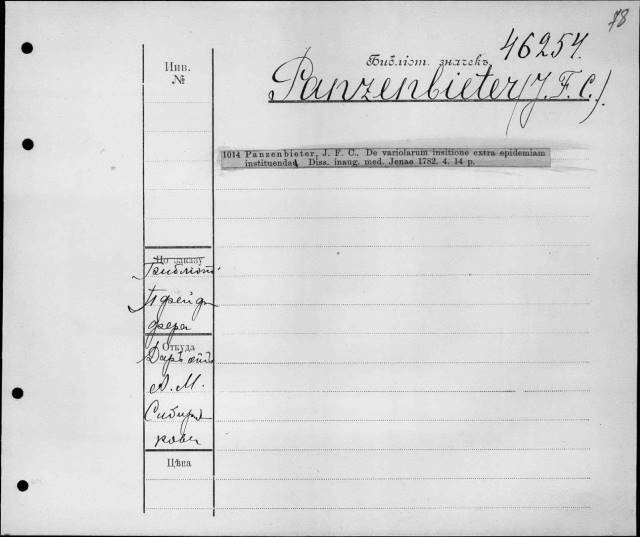 78
46257.
Библіот. значекъ
Panzenbieter (J. F. C.).
Инв.
№
1014 Panzenbieter, J. F. C., De variolarum insitione extra epidemiam
instituenda, Diss. inaug. med. Jenae 1782. 4. 14 p.
По заказу
Библіот.
Пфейф
фера
Откуда
Даръ отъ
А. М.
Сибиря
кова
Цѣна